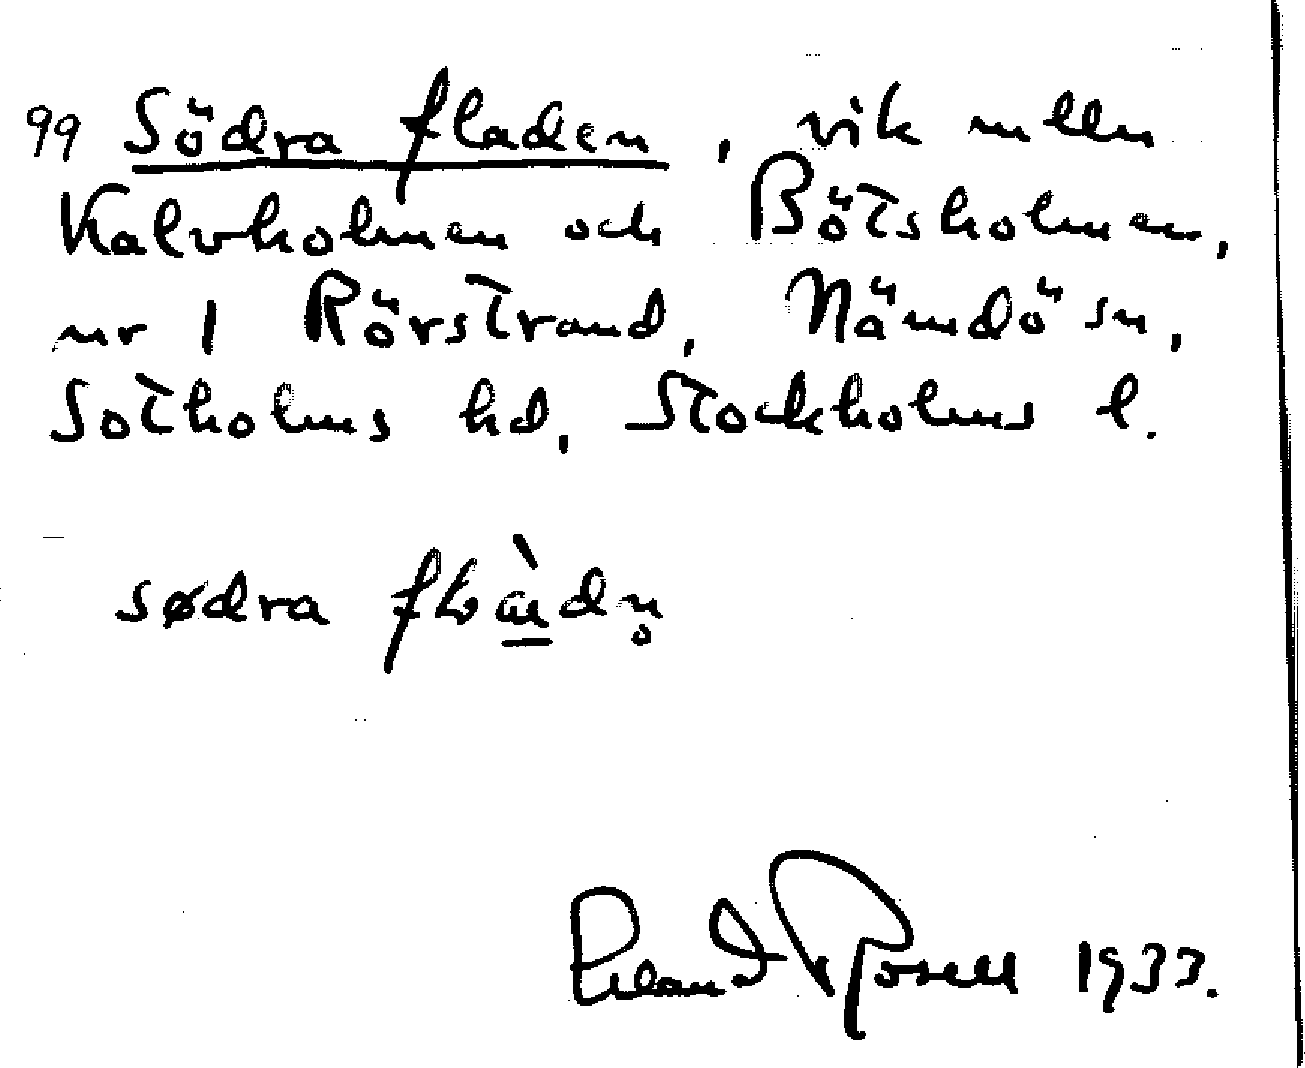 99 Södra fladen, vik mellan
Kalvholmen och Bötsholmen,
nr 1 Rörstrand, Nämdö sn,
Sotholms hd, Stockholms l.
södra
Erland Rosell 1933.